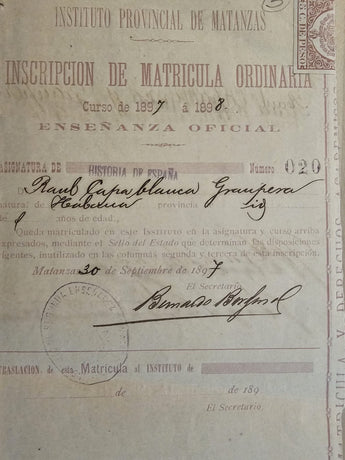 INSTITUTO PROVINCIAL DE MATANZAS
INSCRIPCION DE MATRICULA ORDINARIA
Curso de 1897 á 1898.
ENSEÑANZA OFICIAL
ASIGNATURA DE HISTORIA DE ESPAÑA Numero 020
Raul Capablanca Graupera
natural de Habana provincia id
años de edad,
Queda matriculado en este Instituto en la asignatura y curso arriba
expresados, mediante el Sello del Estado que determinan las disposiciones
vigentes, inutilizado en las columnas segunda y tercera de esta inscripción.
Matanzas 30 de Septiembre de 1897
El Secretario
Bernardo
TRASLACION de esta Matrícula al INSTITUTO de
de de 189
El Secretario
MATRICULA Y DERECHOS